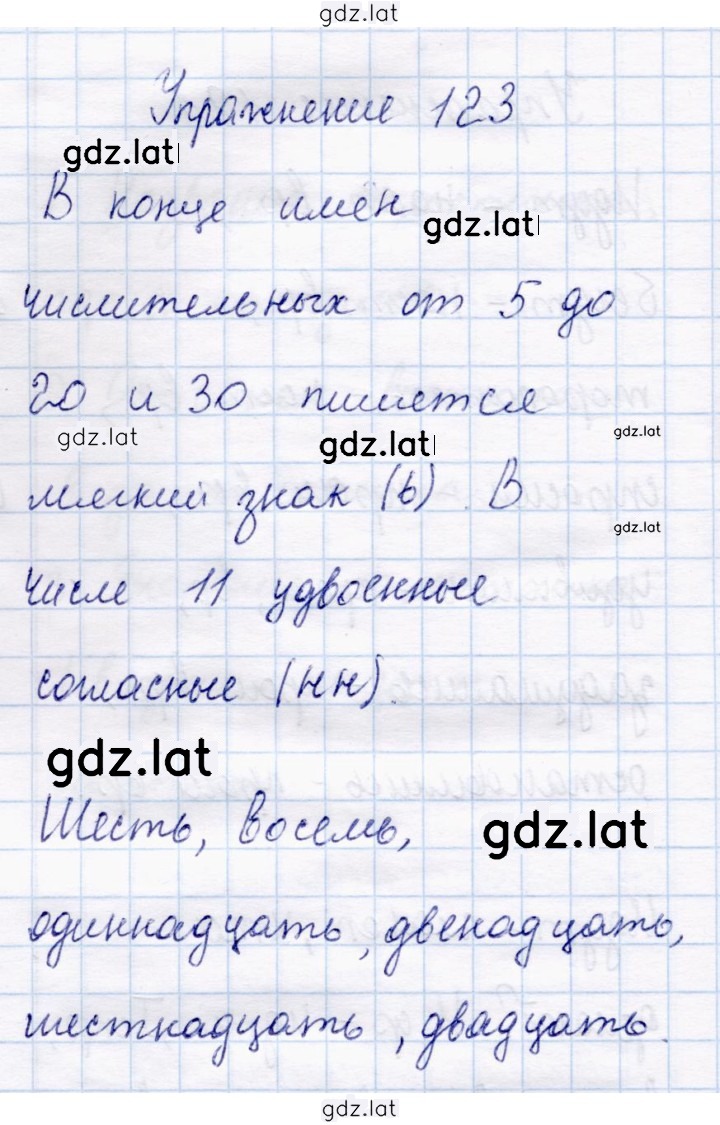 gdz.lat
Упражнение 123
gdz.lat
В конце имён
gdz.lat
числительных от 5 до
20 и 30 пишется
gdz.lat
gdz.lat
gdz.lat
мягкий знак (ь). В
gdz.lat
числе 11 удвоенные
согласные (нн).
gdz.lat
Шесть, восемь,
gdz.lat
одиннадцать, двенадцать,
шестнадцать, двадцать.
gdz.lat